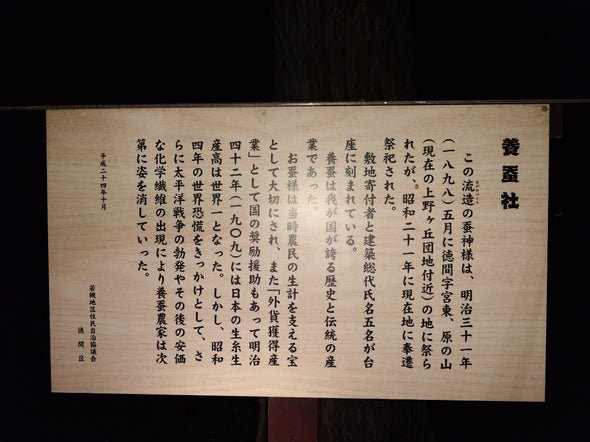 養蚕社
この流造の蚕神様は、明治三十一年
(一八九八)五月に徳間字宮東、原の山
(現在の上野ヶ丘団地付近)の地に祭ら
れたが、昭和二十一年に現在地に奉遷
祭祀された。
敷地寄付者と建築総代氏名五名が台
座に刻まれている。
養蚕は我が国が誇る歴史と伝統の産
業であった。
お蚕様は当時農民の生計を支える宝
として大切にされ、また「外貨獲得産
業」として国の奨励援助もあって明治
四十二年(一九〇九)には日本の生糸生
産高は世界一となった。しかし、昭和
四年の世界恐慌をきっかけとして、さ
らに太平洋戦争の勃発やその後の安価
な化学繊維の出現により養蚕農家は次
第に姿を消していった。
平成二十四年十月
若槻地区住民自治協議会
徳間区